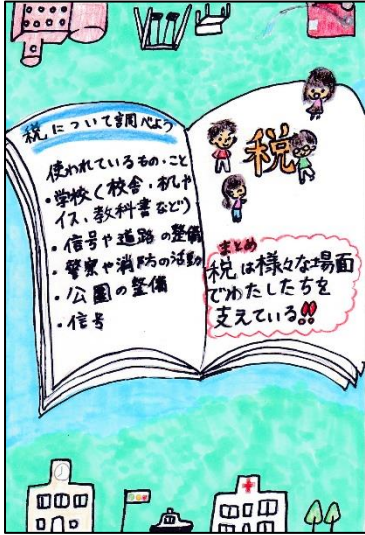 税について調べよう
使われているもの・こと
・学校(校舎・机や
イス、教科書など)
・信号や道路の整備
・警察や消防の活動
・公園の整備
・信号
税
まとめ
税は様々な場面
でわたしたちを
支えている!!